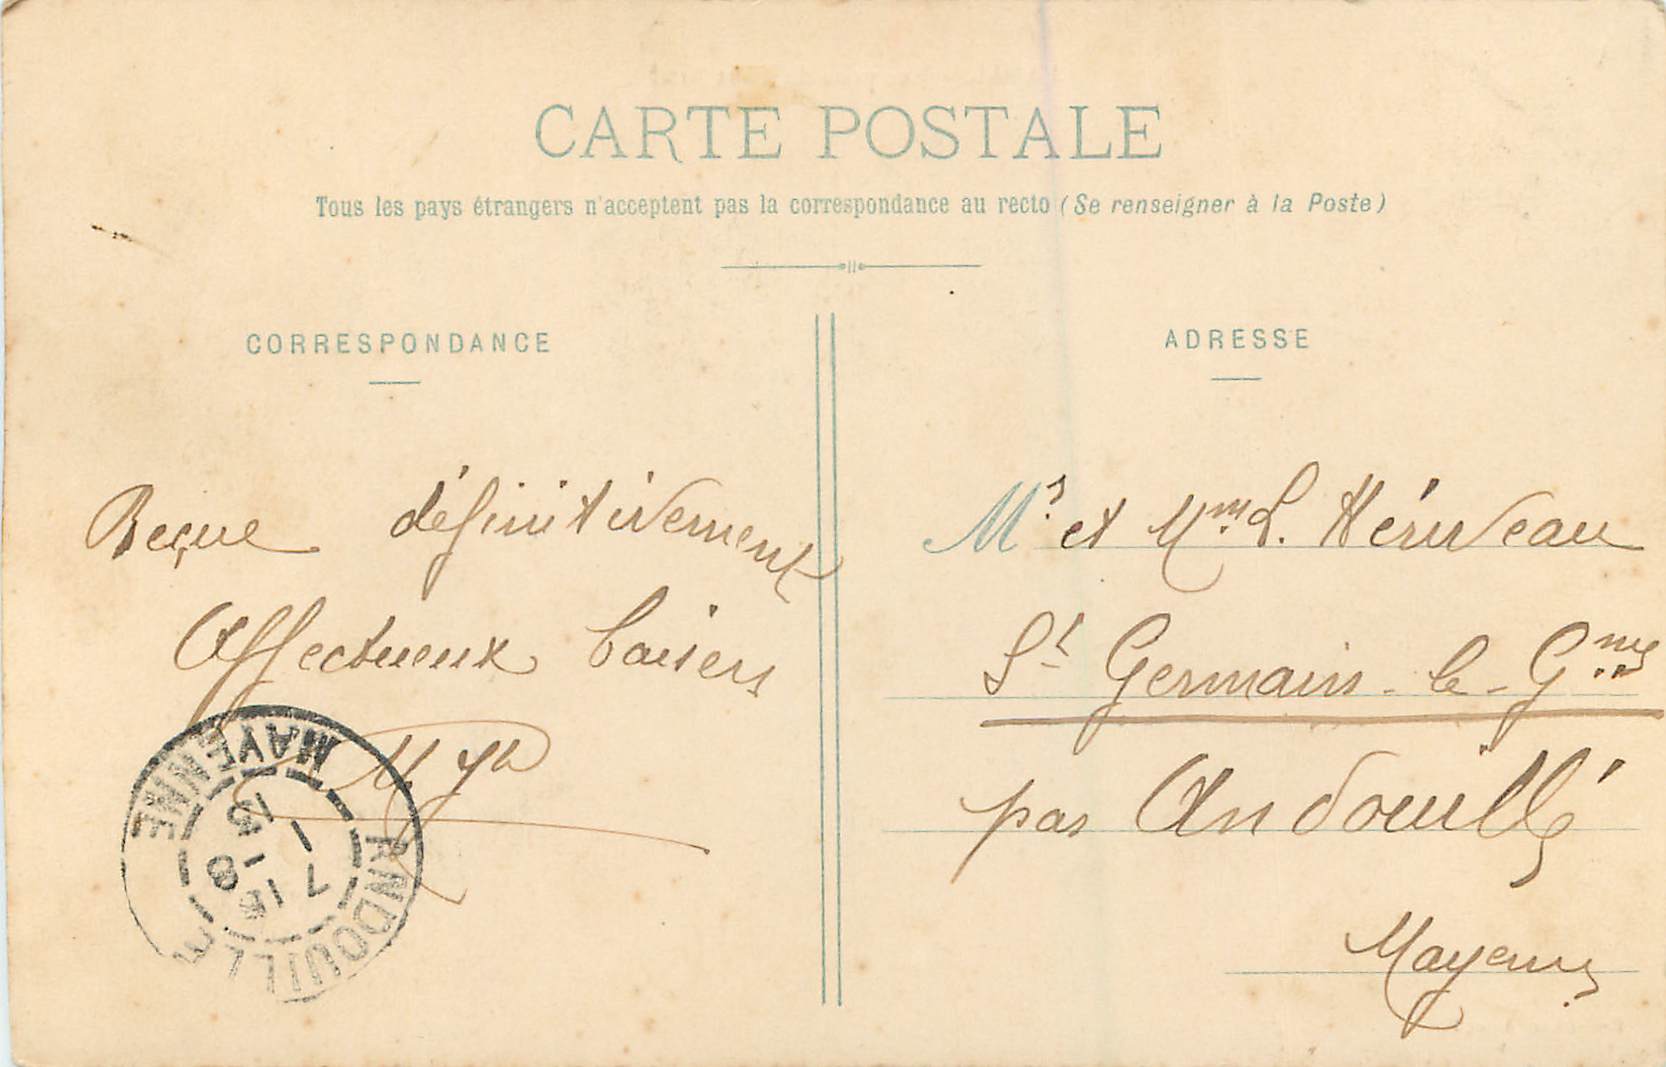 CARTE POSTALE
Tous les pays étrangers n'acceptent pas la correspondance au recto (Se renseigner à la Poste)
CORRESPONDANCE
Reçue définitivement
Affectueux baisers
ADRESSE
Mr et Mme L. Héruveau
St Germain-le-Gme
par Andouillé
Mayenne
ANDOUILLÉ
MAYENNE